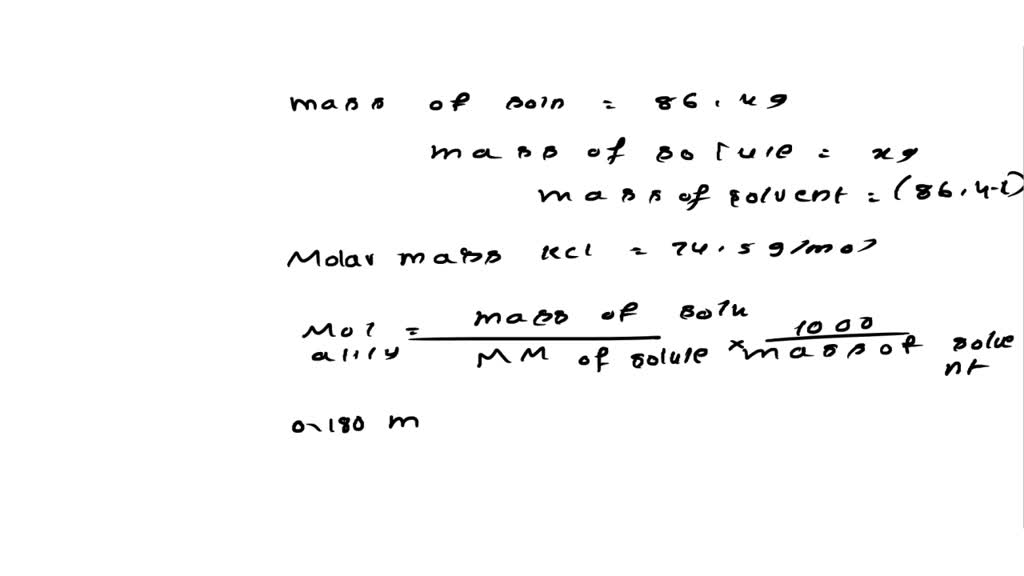 mass of soln = 86.4g
mass of solute = xg
mass of solvent = (86.4-x)
Molar mass KCl = 74.5 g/mol
Mol = mass of solu 1000
ality MM of solute × mass of solve
nt
0.180 m